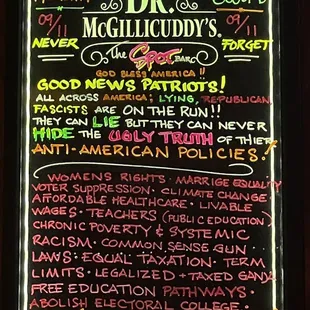 DR.
09/11 McGILLICUDDY'S. 09/11
NEVER FORGET
The SPOT BARC
GOD BLESS AMERICA!!
GOOD NEWS PATRIOTS!
ALL ACROSS AMERICA; LYING, REPUBLICAN
FASCISTS ARE ON THE RUN!!
THEY CAN LIE BUT THEY CAN NEVER
HIDE THE UGLY TRUTH OF THEIR
ANTI-AMERICAN POLICIES!
WOMENS RIGHTS · MARRIGE EQUALITY
VOTER SUPPRESSION · CLIMATE CHANGE
AFFORDABLE HEALTHCARE · LIVABLE
WAGES · TEACHERS (PUBLIC EDUCATION)
CHRONIC POVERTY & SYSTEMIC
RACISM · COMMON SENSE GUN
LAWS · EQUAL TAXATION · TERM
LIMITS · LEGALIZED + TAXED GANJA
FREE EDUCATION PATHWAYS ·
ABOLISH ELECTORAL COLLEGE ·